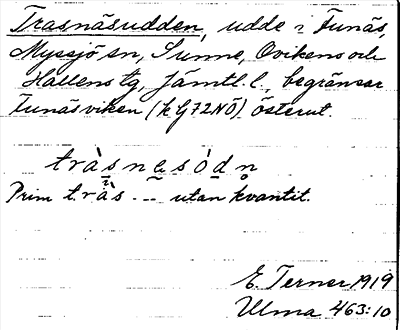 Trasnäsudden, udde i Funäs,
Myssjö sn, Sunne, Ovikens och
Hallens tg, Jämtl. l., begränsar
Funäsviken (k G72NÖ) österut.
tràsnesòdn
Prim tràs - -- utan kvantit.
E. Terner 1919
Ulma 463:10